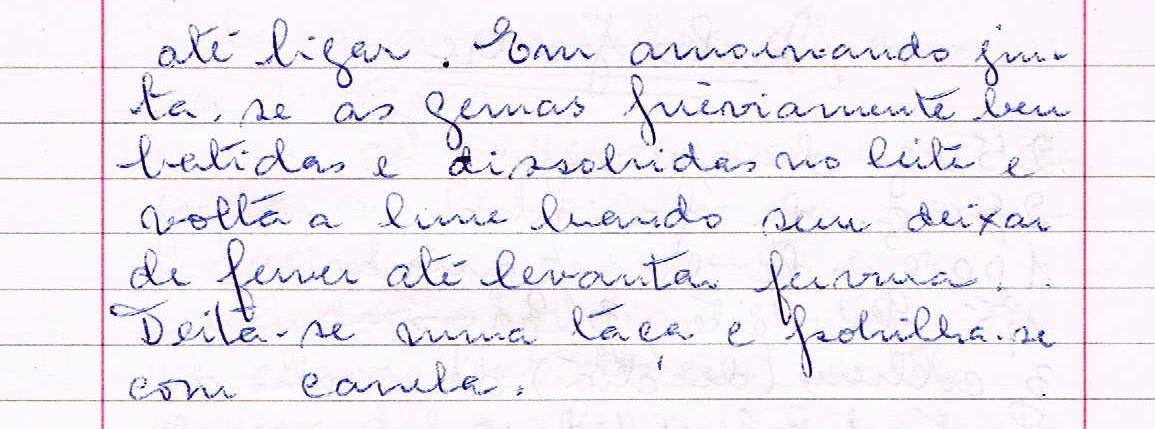 até ligar. Em amornando jun-
ta-se as gemas préviamente bem
batidas e dissolvidas no leite e
volta a lume brando sem deixar
de ferver até levantar fervura.
Deita-se numa taça e polvilha-se
com canela.